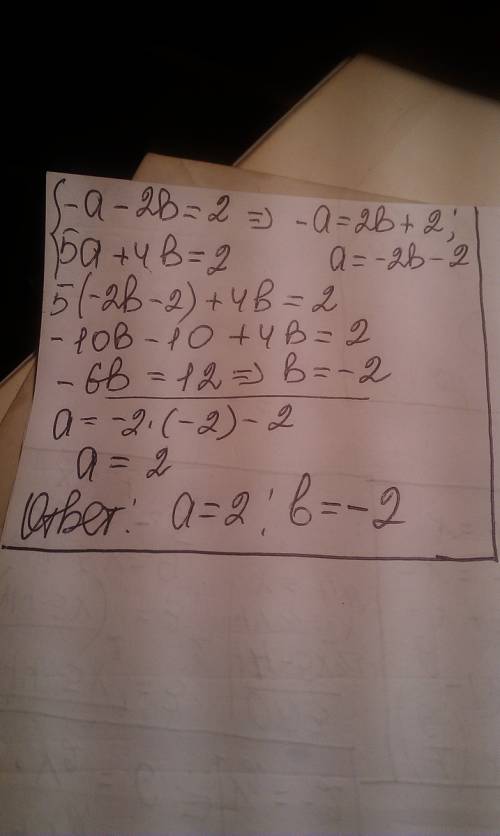 {-a - 2b = 2 => -a = 2b + 2;
{5a + 4b = 2 a = -2b - 2
5(-2b - 2) + 4b = 2
-10b - 10 + 4b = 2
-6b = 12 => b = -2
a = -2·(-2) - 2
a = 2
Ответ: a = 2; b = -2